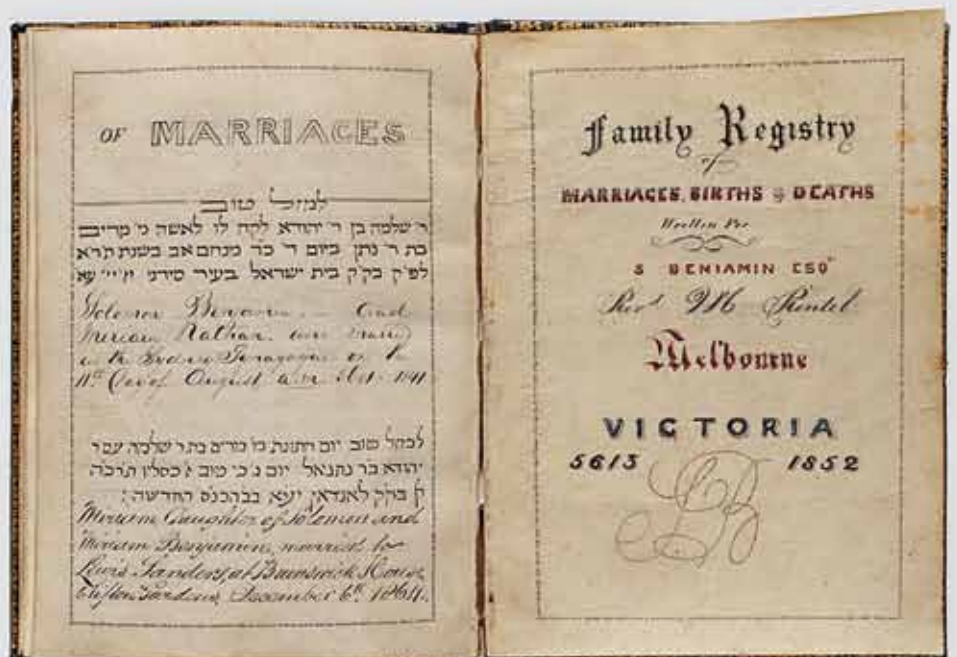 OF MARRIAGES
למזל טוב
ר׳ שלמה בן ר׳ יהודא לקח לו לאשה מ׳ מרים
בת ר׳ נתן ביום ד׳ כד מנחם אב בשנת תרא
לפ״ק בק״ק בית ישראל בעיר סידני
Solomon Benjamin and
Miriam Nathan were married
in the Sydney Synagogue on the
11th Day of August 1841
יום חתונת מ׳ מרים בת ר׳ שלמה עם ר׳
יהודא בר נתנאל יום ג׳ כי טוב ז׳ כסלו תרכה
Miriam Daughter of Solomon and
Miriam Benjamin, married to
Lewis Sanders, at Brunswick House
Clifton Gardens December 6th 1864.
Family Registry
of
MARRIAGES, BIRTHS & DEATHS
Written For
S BENJAMIN ESQR
Revd M Rintel
Melbourne
VICTORIA
5613 1852
SB